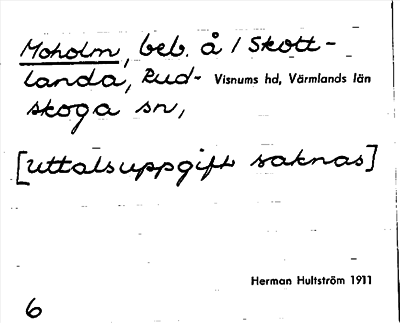 Moholm, beb. å / Skott-
landa, Rud- Visnums hd, Värmlands län
skoga sn,
[uttalsuppgift saknas]
Herman Hultström 1911
6